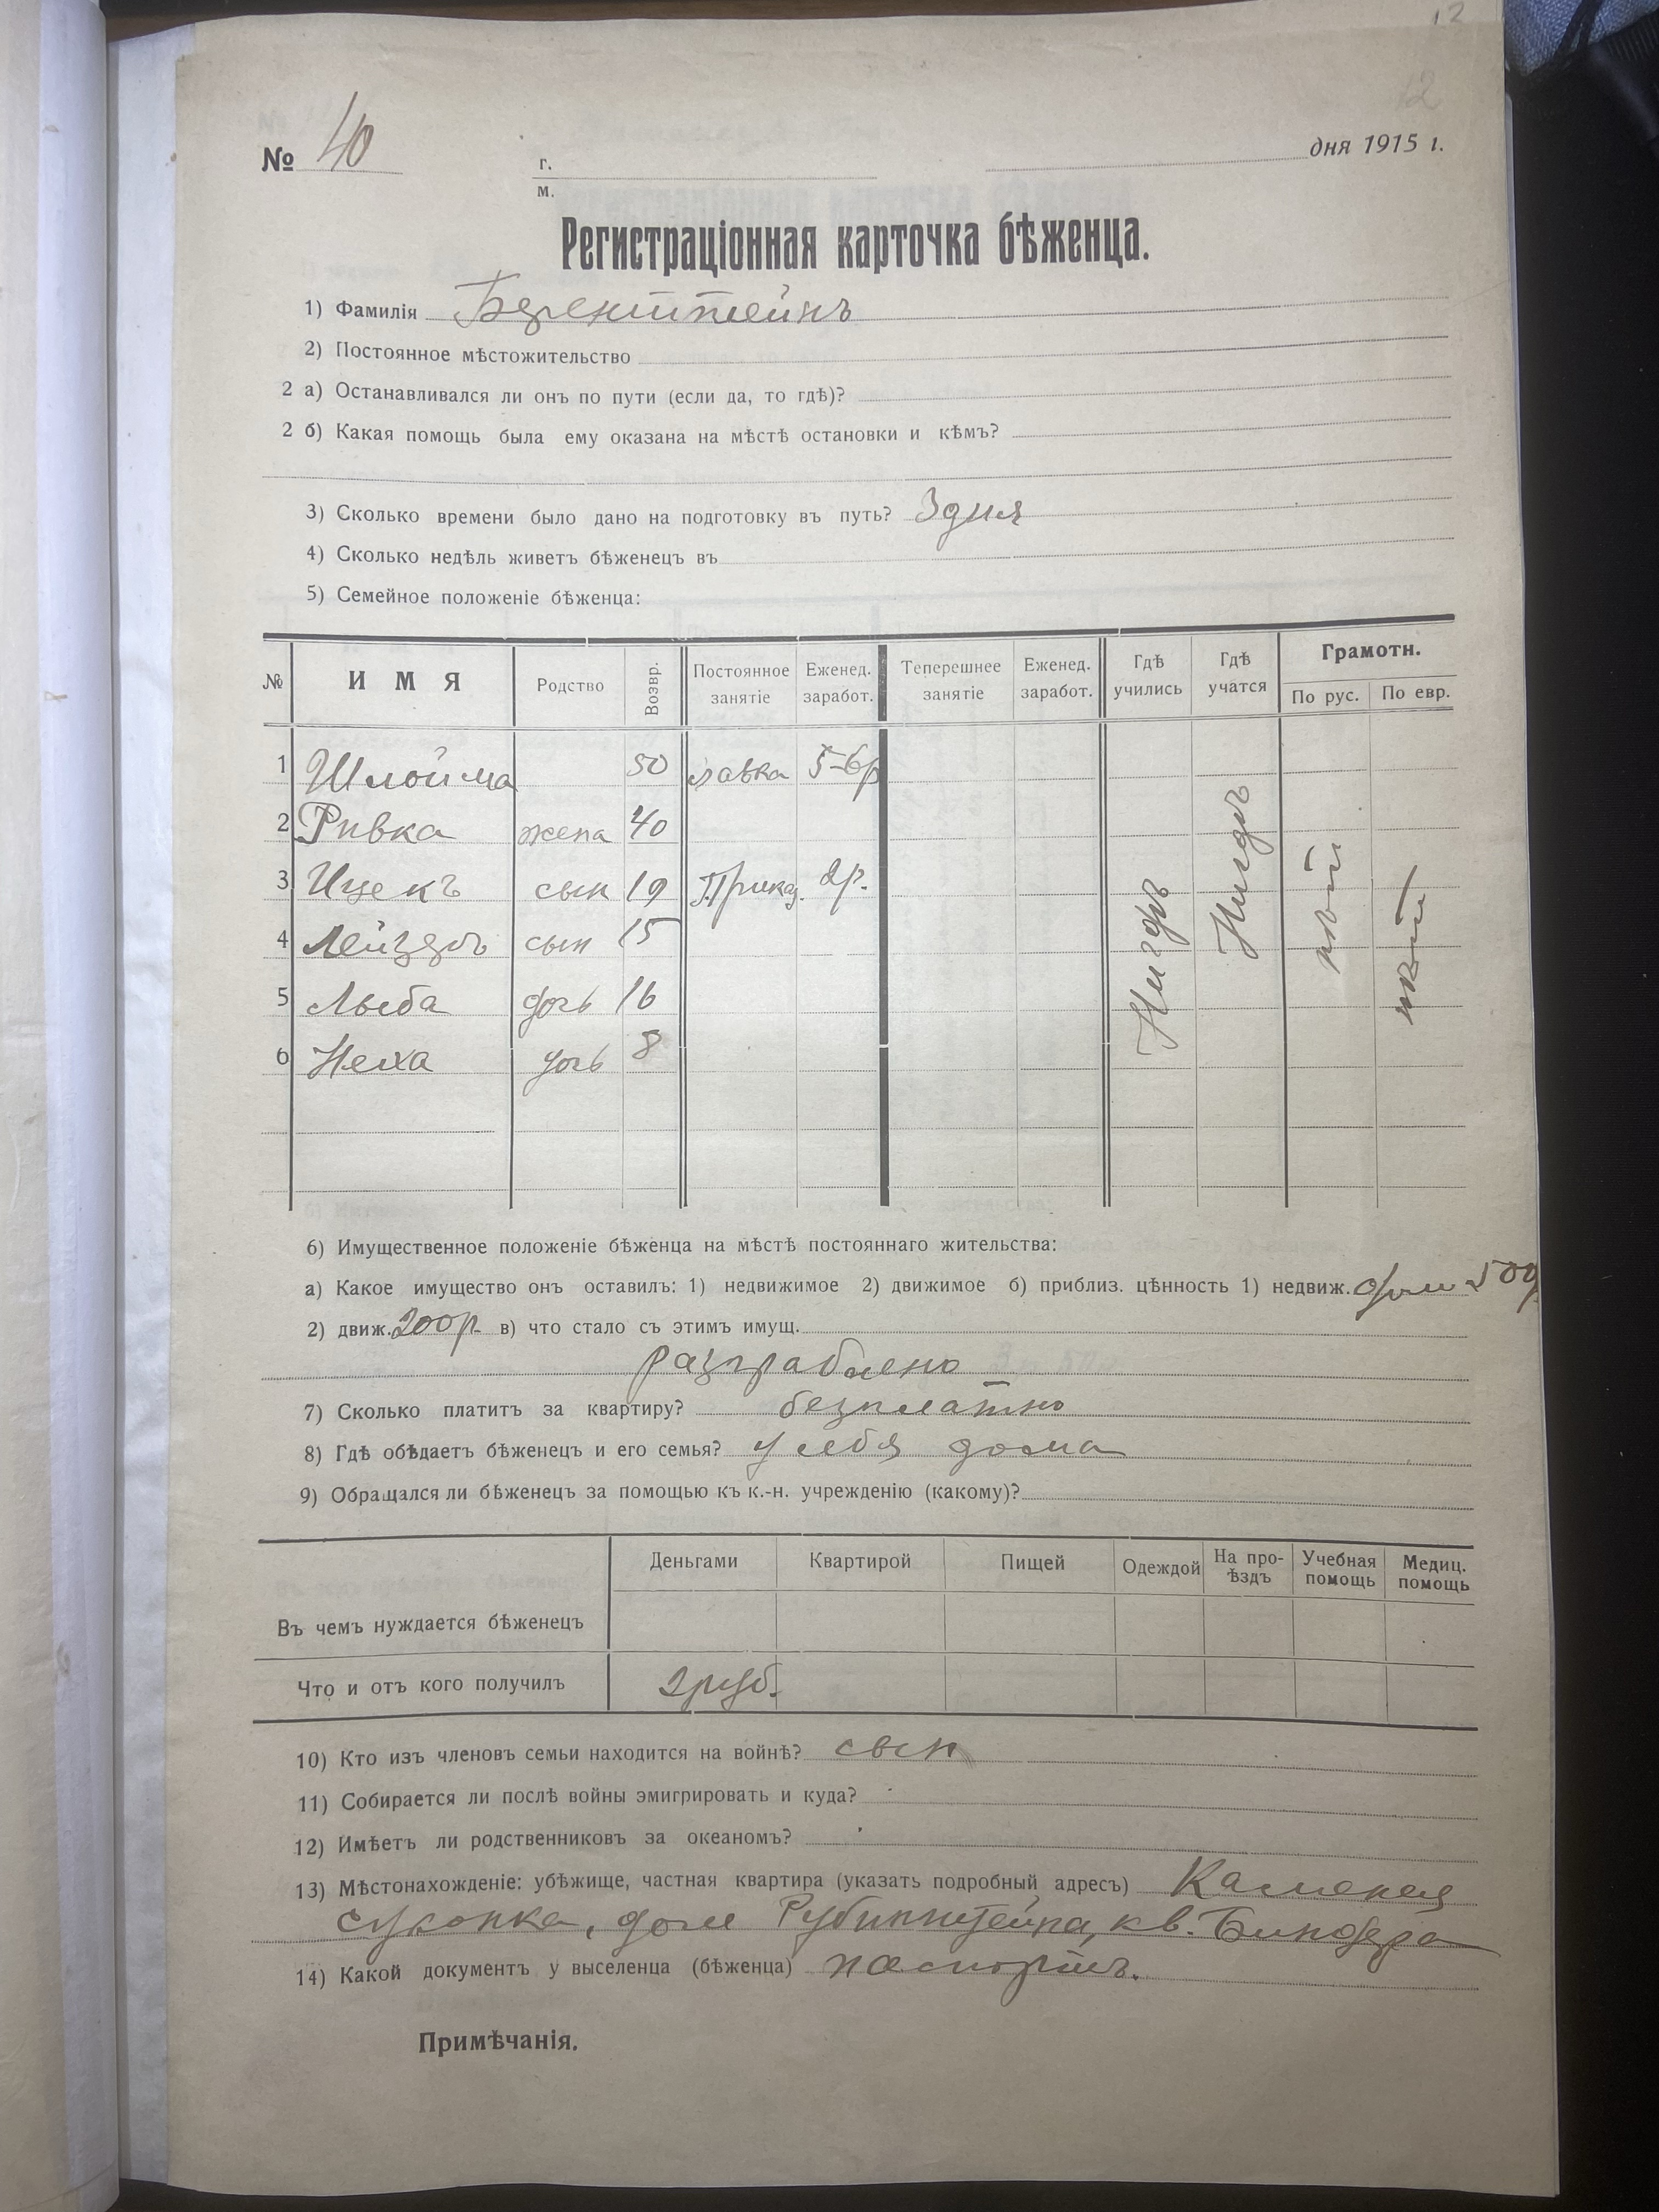 12
12
№ 40 г. дня 1915 г.
м.
Регистраціонная карточка бѣженца.
1) Фамилія Беренштейнъ
2) Постоянное мѣстожительство
2 а) Останавливался ли онъ по пути (если да, то гдѣ)?
2 б) Какая помощь была ему оказана на мѣстѣ остановки и кѣмъ?
3) Сколько времени было дано на подготовку въ путь? 3 дня
4) Сколько недѣль живетъ бѣженецъ въ
5) Семейное положеніе бѣженца:
№ ИМЯ Родство Возвр. Постоянное занятіе Еженед. заработ. Теперешнее занятіе Еженед. заработ. Гдѣ учились Гдѣ учатся Грамотн. По рус. По евр.
1 Шлойма 50 лавка 5-6р
2 Ривка жена 40
3 Ицекъ сын 19 Приказ. 2р.
4 Лейзеръ сын 15
5 Лыба дочь 16
6 Неха дочь 8
Нигдѣ Нигдѣ нѣт нѣт
6) Имущественное положеніе бѣженца на мѣстѣ постояннаго жительства:
а) Какое имущество онъ оставилъ: 1) недвижимое 2) движимое б) приблиз. цѣнность 1) недвиж. дом 500
2) движ. 200р. в) что стало съ этимъ имущ.
разграблено
7) Сколько платитъ за квартиру? безплатно
8) Гдѣ обѣдаетъ бѣженецъ и его семья? у себя дома
9) Обращался ли бѣженецъ за помощью къ к.-н. учрежденію (какому)?
Деньгами Квартирой Пищей Одеждой На проѣздъ Учебная помощь Медиц. помощь
Въ чемъ нуждается бѣженецъ
Что и отъ кого получилъ 2 руб.
10) Кто изъ членовъ семьи находится на войнѣ? сын
11) Собирается ли послѣ войны эмигрировать и куда?
12) Имѣетъ ли родственниковъ за океаномъ?
13) Мѣстонахожденіе: убѣжище, частная квартира (указать подробный адресъ) Каменая
дом Рубинштейна, кв. Биндера
14) Какой документъ у выселенца (бѣженца) паспортъ.
Примѣчанія.